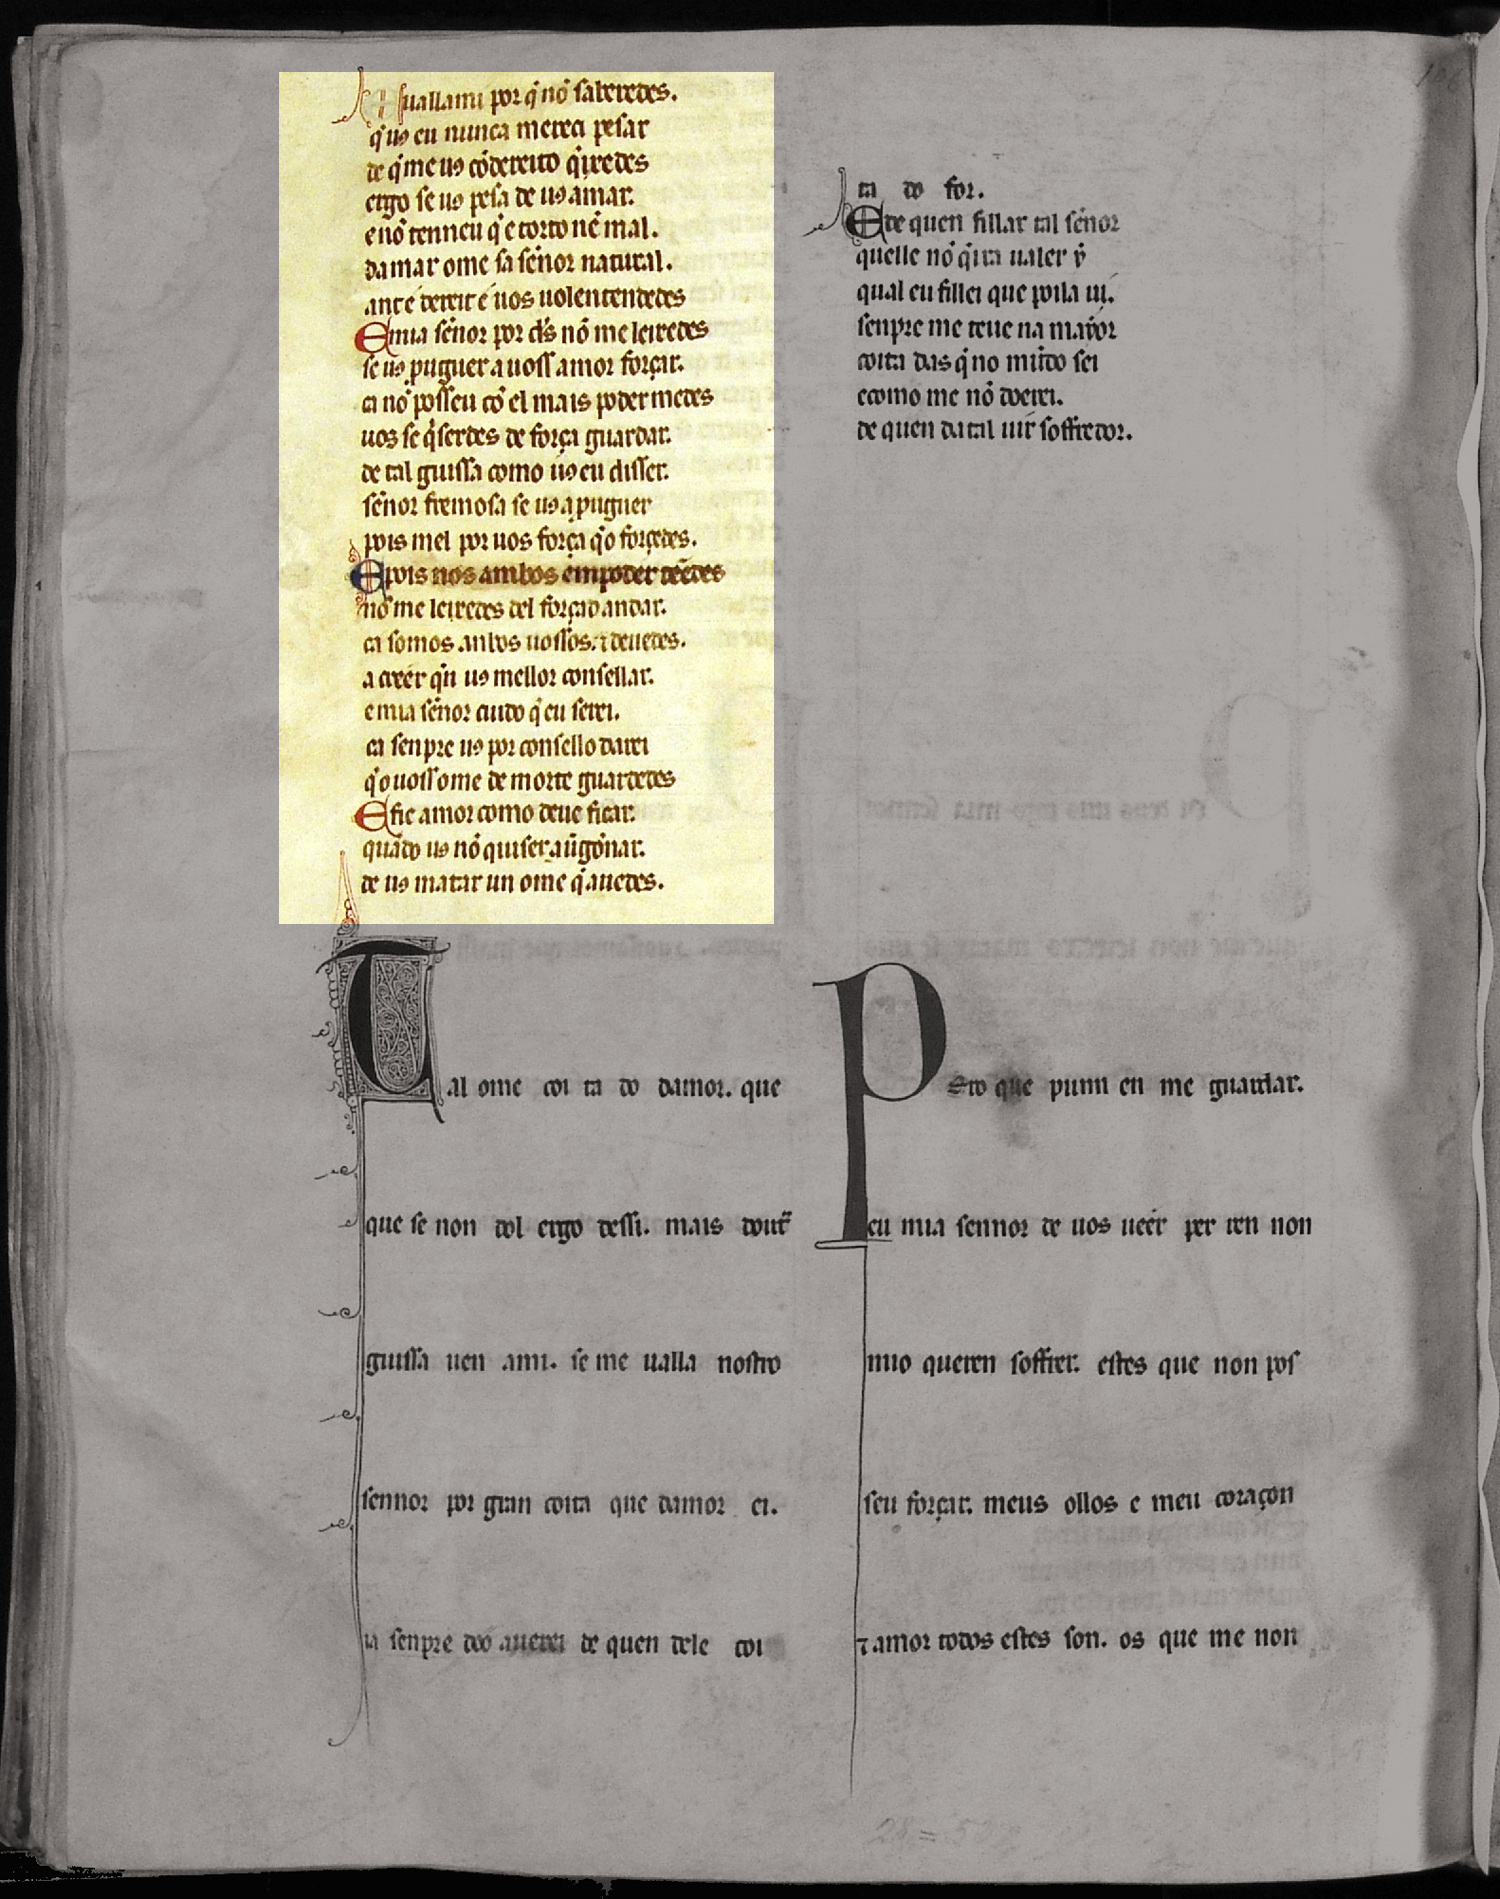 fuallami por q̃ nõ saberedes.
q̃ uꝯ eu nunca mereci pesar
de q̃ me uꝯ cõ dereito q̃ixedes
ergo se uꝯ pesa de uꝯ amar.
e nõ tenneu q̃ e torto nẽ mal.
damar ome sa señor natural.
ant é dereit é uos uolentendedes
Emia señor por d̃s nõ me leixedes
se uꝯ puguer a uoss amor forçar.
ca nõ posseu cõ el mais poder medes
uos se q̃serdes de força guardar.
de tal guissa como uꝯ eu disser.
señor fremosa se uꝯ a puguer
pois mel por uos força q̃o forçedes.
Epois nos ambos em poder teẽdes
nõ me leixedes del forçad andar.
ca somos anbos uossos. ⁊ deuedes.
a creér q̃n uꝯ mellor consellar.
e mia señor cuido q̃ eu serei.
ca senpre uꝯ por consello darei
q̃ o uoss ome de morte guardedes
E fic amor como deue ficar.
quãdo uꝯ nõ quiser aũgonnar.
de uꝯ matar un ome q̃ auedes.
Tal ome coi ta do damor. que
que se non dol ergo dessi. mais doutr̃
guissa uen ami. se me ualla nostro
sennor por gran coita que damor ei.
ia senpre doo auerei de quen dele coi
ta do for.
Ede quen fillar tal señor
quelle nõ q̃ira ualer ỹ
qual eu fillei que pola ui.
senpre me teue na mayor
coita das q̃ no mũdo sei
e como me nõ doerei.
de quen da tal uir soffredor.
Pero que punn en me guardar.
eu mia sennor de uos ueér per ren non
mio queren soffrer. estes que non pos
seu forçar. meus ollos e meu coraçon
⁊ amor todos estes son. os que me non